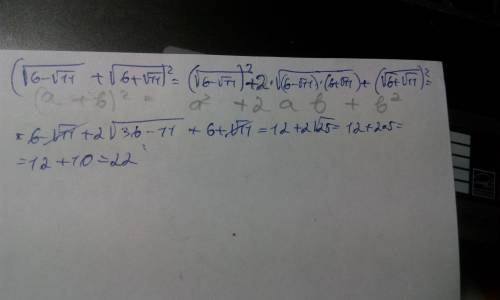 (√6-√11 + √6+√11)² = (√6-√11)² + 2·√(6-√11)·(6+√11) + (√6+√11)² =
(a + b)² = a² + 2 a b + b²
= 6-√11 + 2√36-11 + 6+√11 = 12+2√25 = 12+2·5 =
= 12 + 10 = 22